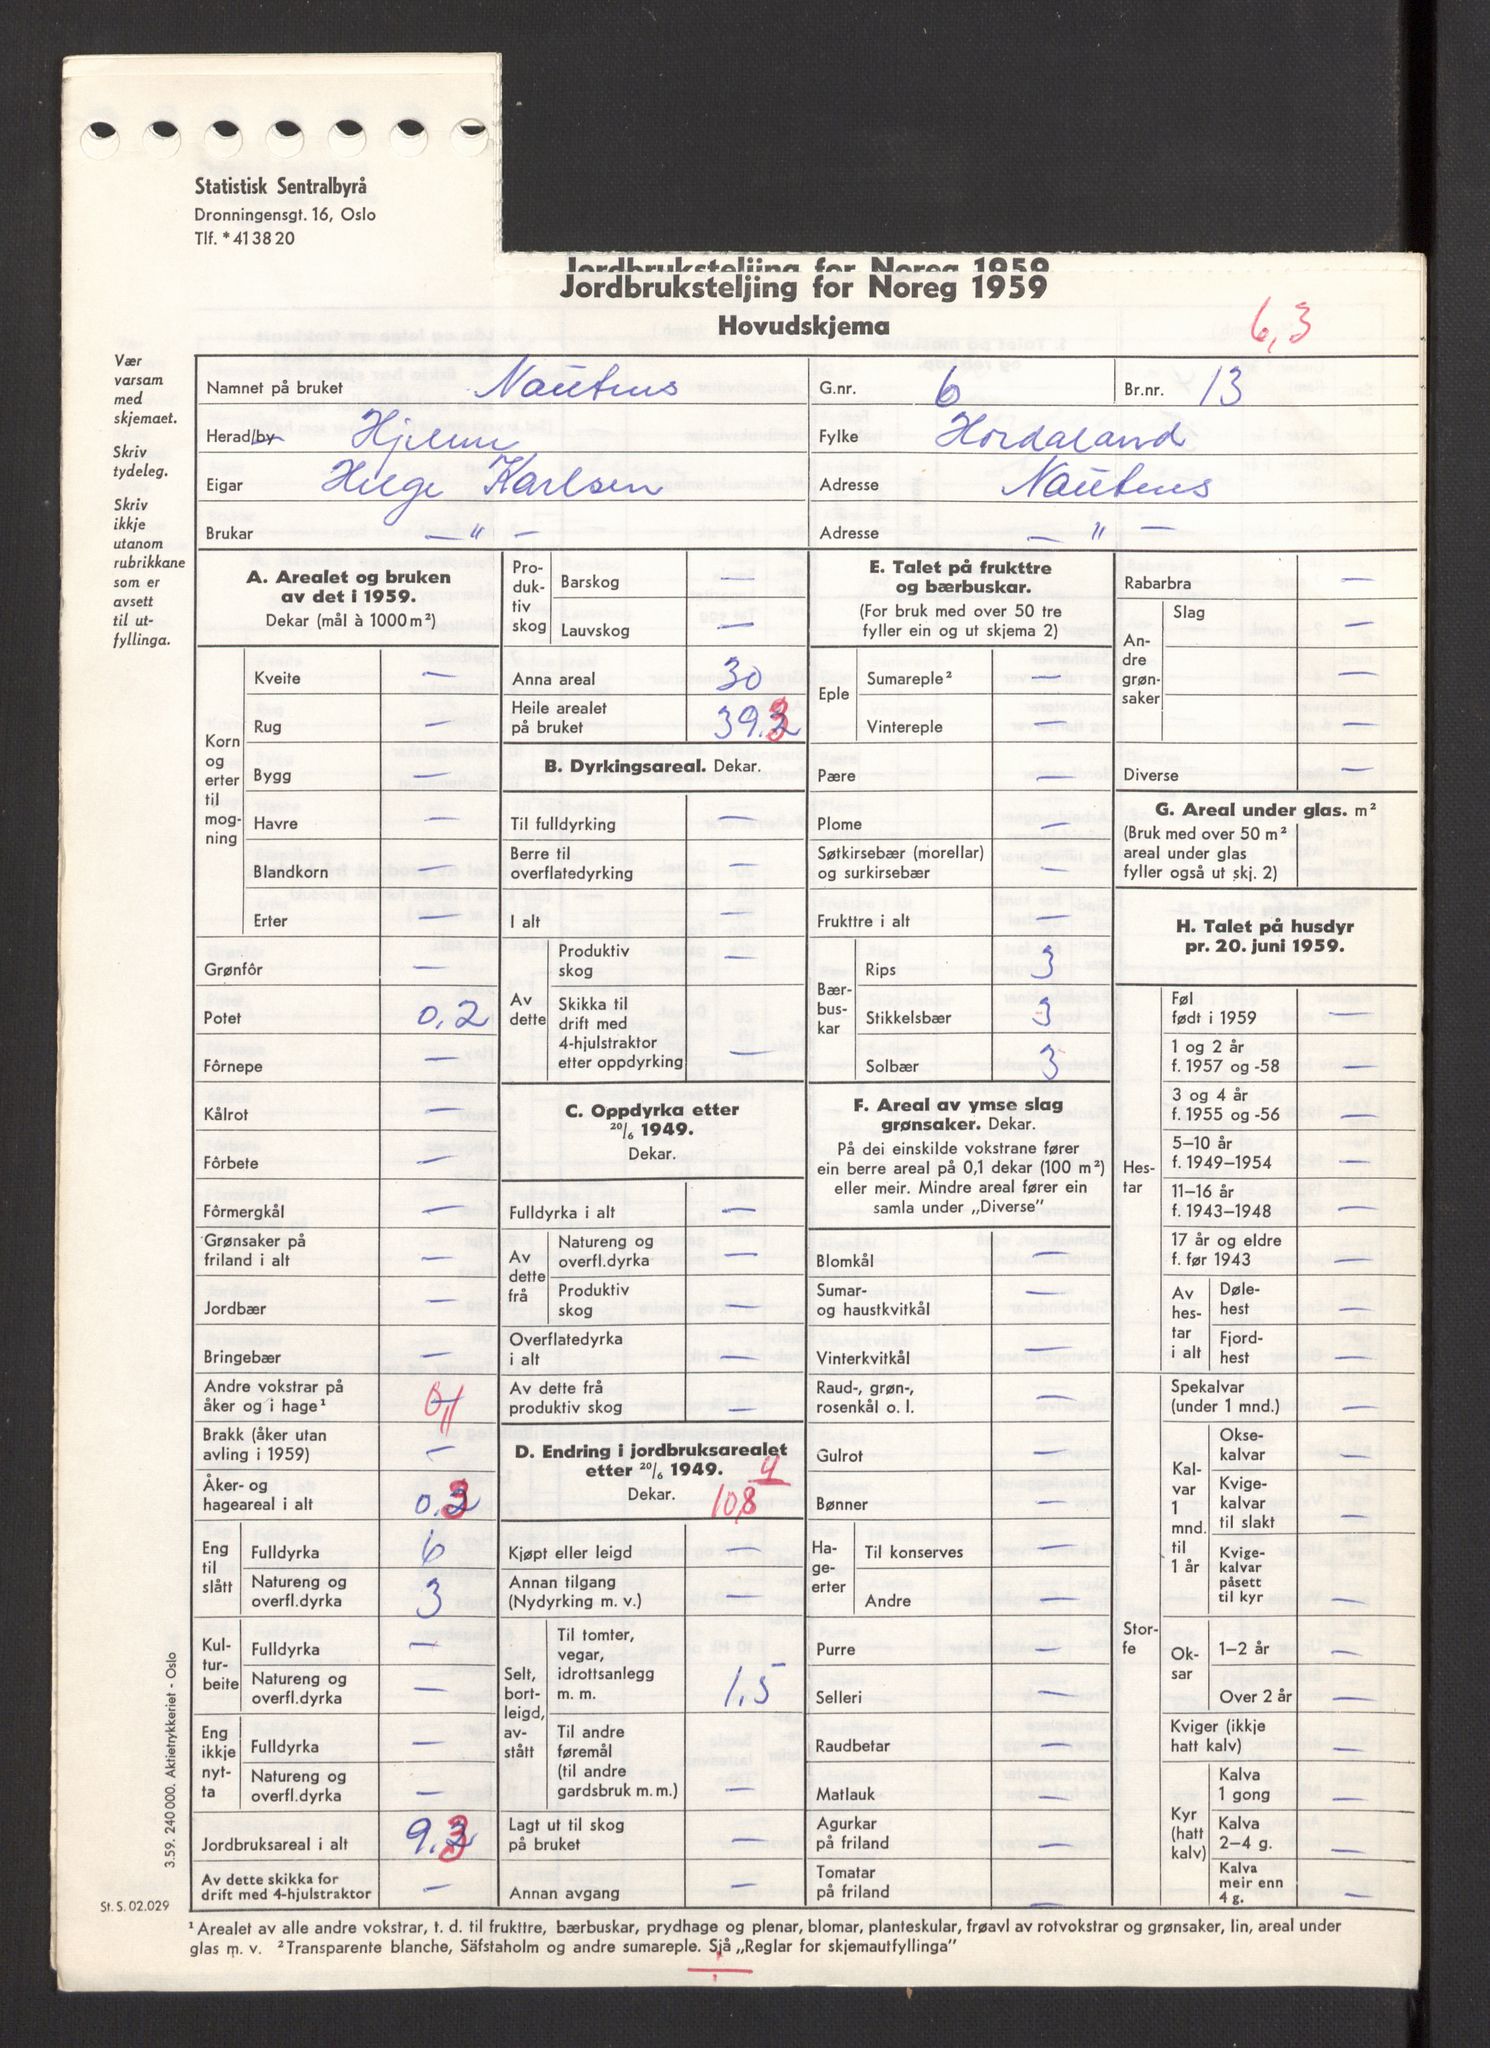 Statistisk Sentralbyrå
Dronningensgt. 16, Oslo
Tlf. *41 38 20
Jordbruksteljing for Noreg 1959
Jordbruksteljing for Noreg 1959
Hovudskjema
6,3
Vær
varsam
med
skjemaet.
Skriv
tydeleg.
Skriv
ikkje
utanom
rubrikkane
som er
avsett
til ut-
fyllinga.
Namnet på bruket Nautnes G.nr. 6 Br.nr. 13
Herad/by Hjelme Fylke Hordaland
Eigar Helge Karlsen Adresse Nautnes
Brukar — " — Adresse — " —
A. Arealet og bruken
av det i 1959.
Dekar (mål à 1000 m²)
Korn
og
erter
til
mog-
ning
Kveite —
Rug —
Bygg —
Havre —
Blandkorn —
Erter —
Grønfôr —
Potet 0,2
Fôrnepe —
Kålrot —
Fôrbete —
Fôrmergkål —
Grønsaker på
friland i alt —
Jordbær —
Bringebær —
Andre vokstrar på
åker og i hage¹ 0,1
Brakk (åker utan
avling i 1959) —
Åker- og
hageareal i alt 0.3
Eng
til
slått
Fulldyrka 6
Natureng og
overfl.dyrka 3
Kul-
tur-
beite
Fulldyrka —
Natureng og
overfl.dyrka —
Eng
ikkje
nyt-
ta
Fulldyrka —
Natureng og
overfl.dyrka —
Jordbruksareal i alt 9.3
Av dette skikka for
drift med 4-hjulstraktor —
Pro-
duk-
tiv
skog
Barskog —
Lauvskog —
Anna areal 30
Heile arealet
på bruket 39.3
B. Dyrkingsareal. Dekar.
Til fulldyrking —
Berre til
overflatedyrking —
I alt —
Av
dette
Produktiv
skog —
Skikka til
drift med
4-hjulstraktor
etter oppdyrking —
C. Oppdyrka etter
20/6 1949.
Dekar.
Fulldyrka i alt —
Av
dette
frå
Natureng og
overfl.dyrka —
Produktiv
skog —
Overflatedyrka
i alt —
Av dette frå
produktiv skog —
D. Endring i jordbruksarealet
etter 20/6 1949. 9
Dekar. 10,8
Kjøpt eller leigd —
Annan tilgang
(Nydyrking m. v.) —
Selt,
bort-
leigd,
av-
stått
Til tomter,
vegar,
idrottsanlegg
m. m. 1,5
Til andre
føremål
(til andre
gardsbruk m. m.) —
Lagt ut til skog
på bruket —
Annan avgang —
E. Talet på frukttre
og bærbuskar.
(For bruk med over 50 tre
fyller ein og ut skjema 2)
Eple
Sumareple² —
Vintereple —
Pære —
Plome —
Søtkirsebær (morellar)
og surkirsebær —
Frukttre i alt —
Bær-
bus-
kar
Rips 3
Stikkelsbær 3
Solbær 3
F. Areal av ymse slag
grønsaker. Dekar.
På dei einskilde vokstrane fører
ein berre areal på 0,1 dekar (100 m²)
eller meir. Mindre areal fører ein
samla under „Diverse"
Blomkål —
Sumar-
og haustkvitkål —
Vinterkvitkål —
Raud-, grøn-,
rosenkål o. l. —
Gulrot —
Bønner —
Ha-
ge-
erter
Til konserves —
Andre —
Purre —
Selleri —
Raudbetar —
Matlauk —
Agurkar
på friland —
Tomatar
på friland —
Rabarbra —
An-
dre
grøn-
saker
Slag —
—
—
Diverse —
G. Areal under glas. m²
(Bruk med over 50 m²
areal under glas
fyller også ut skj. 2)
H. Talet på husdyr
pr. 20. juni 1959.
Hes-
tar
Føl
født i 1959 —
1 og 2 år
f. 1957 og -58 —
3 og 4 år
f. 1955 og -56 —
5–10 år
f. 1949–1954 —
11–16 år
f. 1943–1948 —
17 år og eldre
f. før 1943 —
Av
hes-
tar
i alt
Døle-
hest —
Fjord-
hest —
Stor-
fe
Spekalvar
(under 1 mnd.) —
Kal-
var
1
mnd.
til
1 år
Okse-
kalvar —
Kvige-
kalvar
til slakt —
Kvige-
kalvar
påsett
til kyr —
Ok-
sar
1–2 år —
Over 2 år —
Kviger (ikkje
hatt kalv) —
Kyr
(hatt
kalv)
Kalva
1 gong —
Kalva
2–4 g. —
Kalva
meir enn
4 g. —
3.59. 240 000. Aktietrykkeriet - Oslo
St. S. 02.029
¹ Arealet av alle andre vokstrar, t. d. til frukttre, bærbuskar, prydhage og plenar, blomar, planteskular, frøavl av rotvokstrar og grønsaker, lin, areal under
glas m. v. ² Transparente blanche, Säfstaholm og andre sumareple. Sjå „Reglar for skjemautfyllinga"